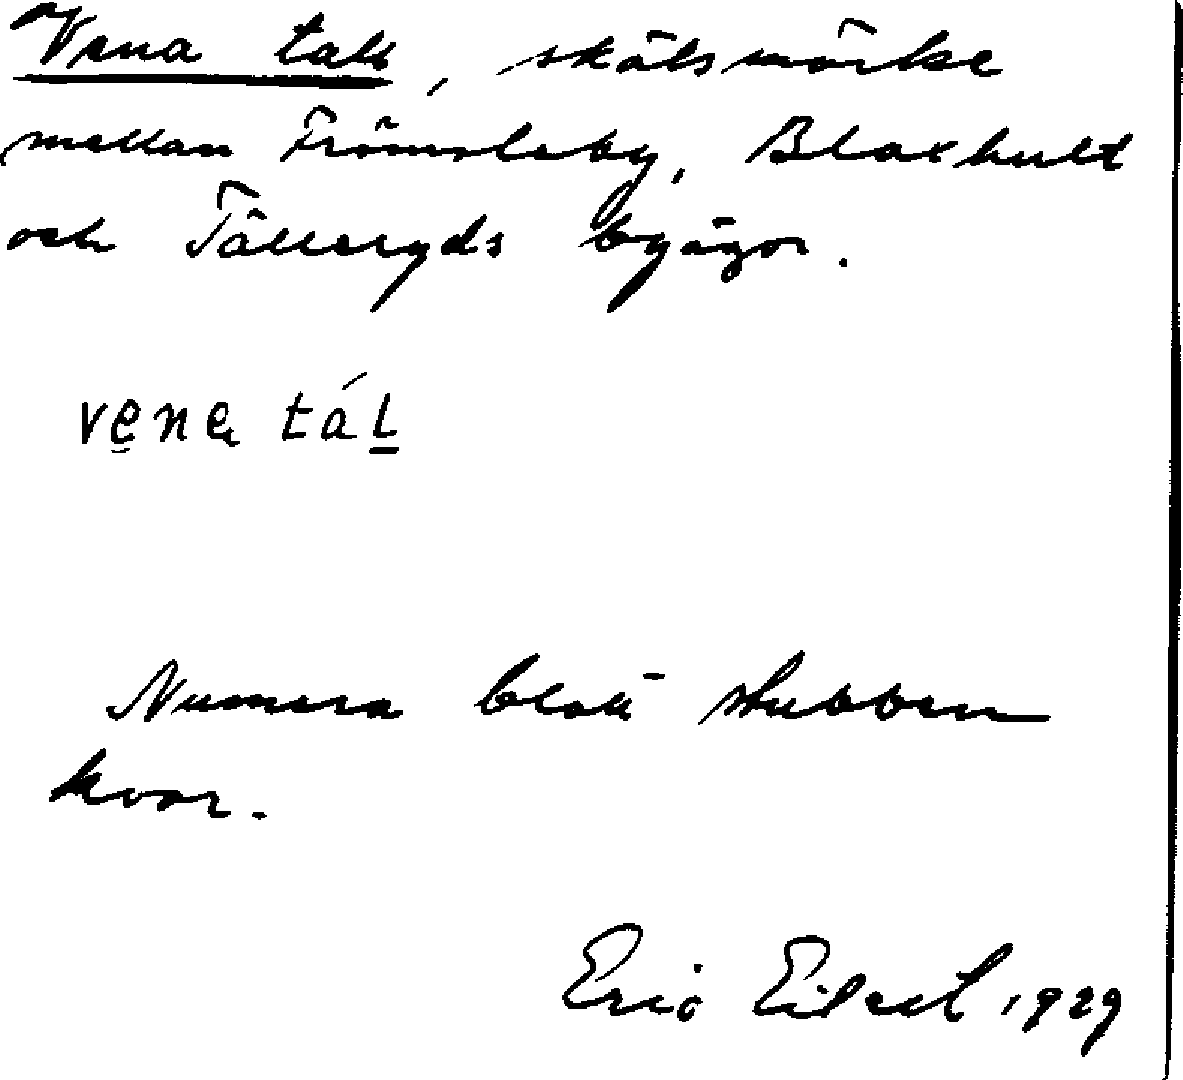 Vena tall, skälsmärke
mellan Främsleby, Blaxhult
och Tälleryds byägor.
vene tál
Numera blott stubben
kvar.
Eric Eilert 1929